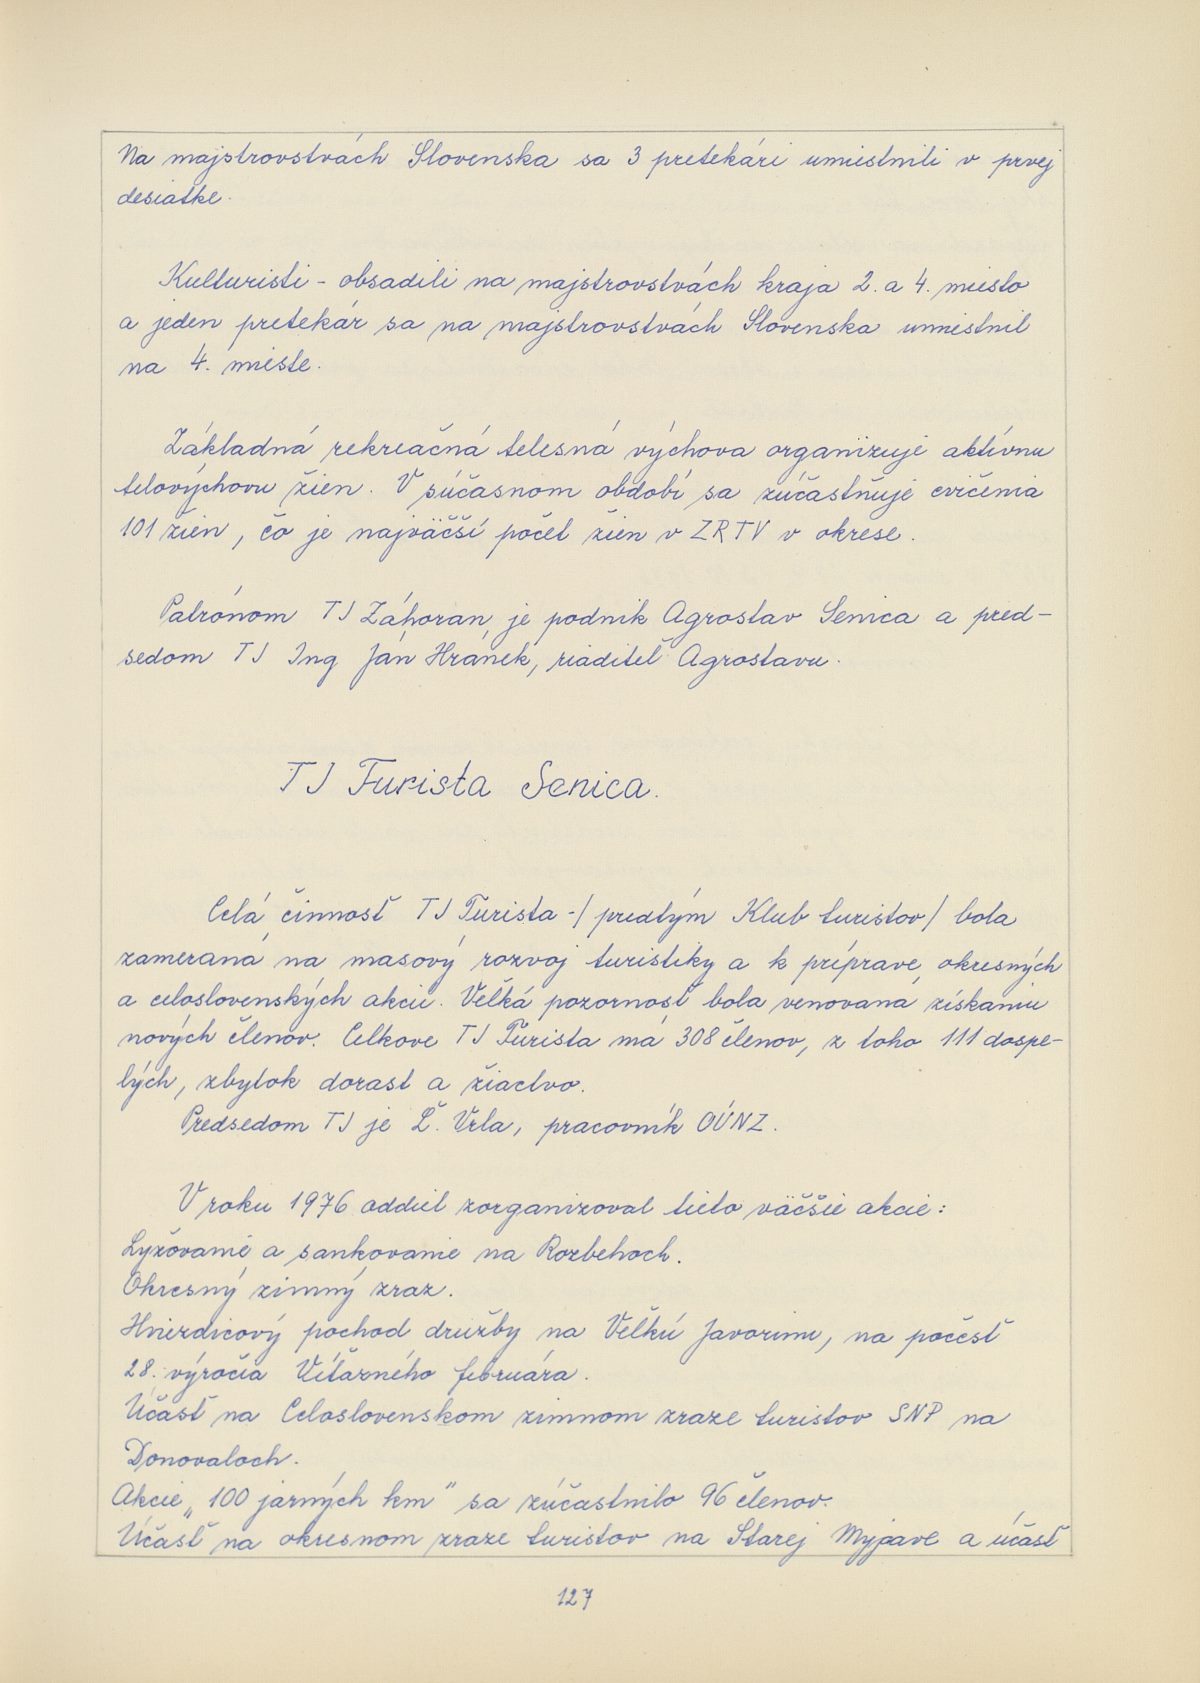 Na majstrovstvách Slovenska sa 3 pretekári umiestnili v prvej
desiatke.
Kulturisti - obsadili na majstrovstvách kraja 2. a 4. miesto
a jeden pretekár sa na majstrovstvách Slovenska umiestnil
na 4. mieste.
Základná rekreačná telesná výchova organizuje aktívnu
telovýchovu žien. V súčasnom období sa zúčastňuje cvičenia
101 žien, čo je najväčší počet žien v ZRTV v okrese.
Patrónom TJ Záhoran je podnik Agrostav Senica a pred-
sedom TJ Ing Ján Hránek, riaditeľ Agrostavu.
TJ Turista Senica.
Celá činnosť TJ Turista -/ predtým Klub turistov/ bola
zameraná na masový rozvoj turistiky a k príprave okresných
a celoslovenských akcií. Veľká pozornosť bola venovaná získaniu
nových členov. Celkove TJ Turista má 308 členov, z toho 111 dospe-
lých, zbytok dorast a žiactvo.
Predsedom TJ je Ľ. Vrla, pracovník OÚNZ.
V roku 1976 oddiel zorganizoval tieto väčšie akcie:
Lyžovanie a sankovanie na Rozbehoch.
Okresný zimný zraz.
Hviezdicový pochod družby na Veľkú Javorinu, na počesť
28. výročia Víťazného februára.
Účasť na Celoslovenskom zimnom zraze turistov SNP na
Donovaloch.
Akcie „100 jarných km" sa zúčastnilo 96 členov.
Účasť na okresnom zraze turistov na Starej Myjave a účasť
127